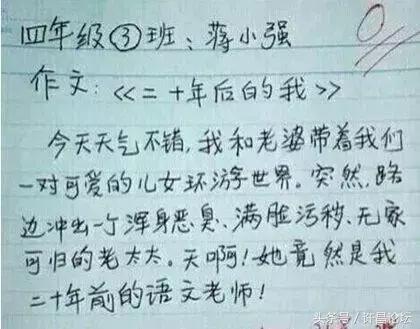 四年级③班：蒋小强
0
作文：《二十年后的我》
今天天气不错，我和老婆带着我们
一对可爱的儿女环游世界。突然，路
边冲出一个浑身恶臭、满脸污秽、无家
可归的老太太。天啊！她竟然是我
二十年前的语文老师！
头条号/许昌论坛